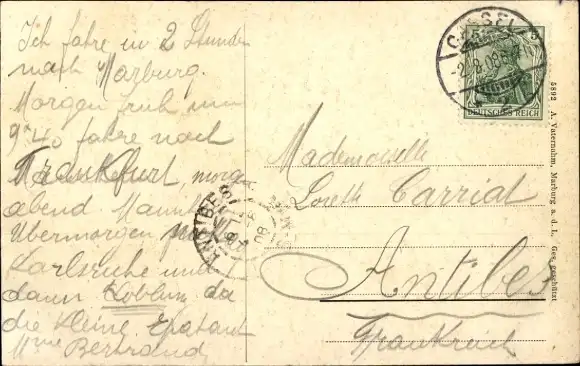 Ich fahre in 2 Stunden
nach Marburg.
Morgen früh um
9 40 fahre nach
Frankfurt, morgen
abend Mannh
Übermorgen
Karlsruhe und
dann Koblenz, da
die kleine
Mme Bertrand
CASSEL
8.08
DEUTSCHES REICH
Mademoiselle
Lorette Carriat
Antibes
Frankreich
ANTIBES
08
5892 A. Vaternahm, Marburg a. d. L. Ges. geschützt